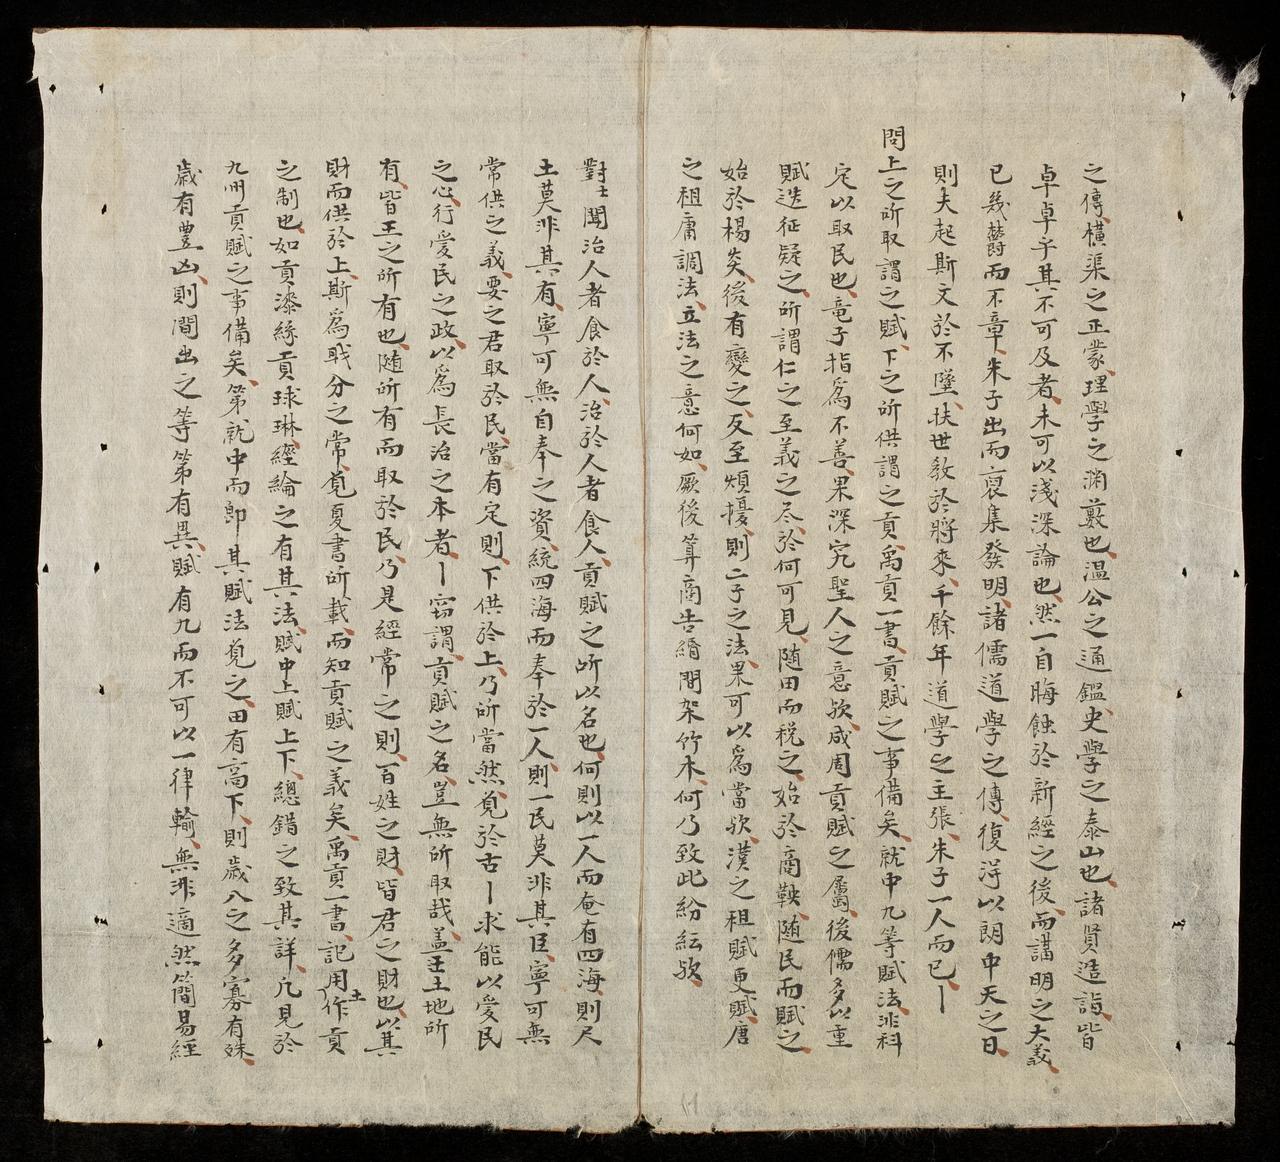 之傳、橫渠之正蒙、理學之渊藪也、溫公之通鑑、史學之泰山也、諸賢造詣、皆
卓卓乎其不可及者、未可以淺深論也、然一自晦蝕於新經之後、而講明之大義
已幾欝而不章、朱子出而裒集發明、諸儒道學之傳、復淂以朗中天之日、
則夫起斯文於不墜、扶世教於將來、千餘年道學之主張、朱子一人而已、
問上之所取謂之賦、下之所供謂之貢、禹貢一書、貢賦之事備矣、就中九等賦法、非科
定以取民也、竜子指爲不善、果深究聖人之意欤、成周貢賦之屬、後儒多以重
賦造征疑之、所謂仁之至義之尽、於何可見、随田而税之、始於商鞅、随民而賦之、
始於楊炎、後有變之、反至煩擾、則二子之法、果可以爲當欤、漢之租賦更賦、唐
之租庸調法、立法之意何如、厥後算商告緡間架竹木、何乃致此紛紜欤、
對士聞治人者食於人、治於人者食人、貢賦之所以名也、何則以一人而奄有四海、則尺
土莫非其有、寧可無自奉之資、統四海而奉於一人、則一民莫非其臣、寧可無
常供之義、要之君取於民、當有定則、下供於上、乃所當然、覔於古丨求能以愛民
之心、行愛民之政、以爲長治之本者、丨窃謂、貢賦之名、豈無所取哉、盖王土地所
有、皆王之所有也、随所有而取於民、乃是經常之則、百姓之財、皆君之財也、以其
財而供於上、斯爲戝分之常、覔夏書所載、而知貢賦之義矣、禹貢一書、記用作土貢
之制也、如貢漆絲貢球琳、經綸之有其法、賦中上賦上下、總錯之致其詳、凡見於
九州貢賦之事備矣、第就中而卽其賦法覔之、田有高下、則歲入之多寡有殊、
歲有豊凶、則間出之等第有異、賦有九而不可以一律輸、無非適然簡易經